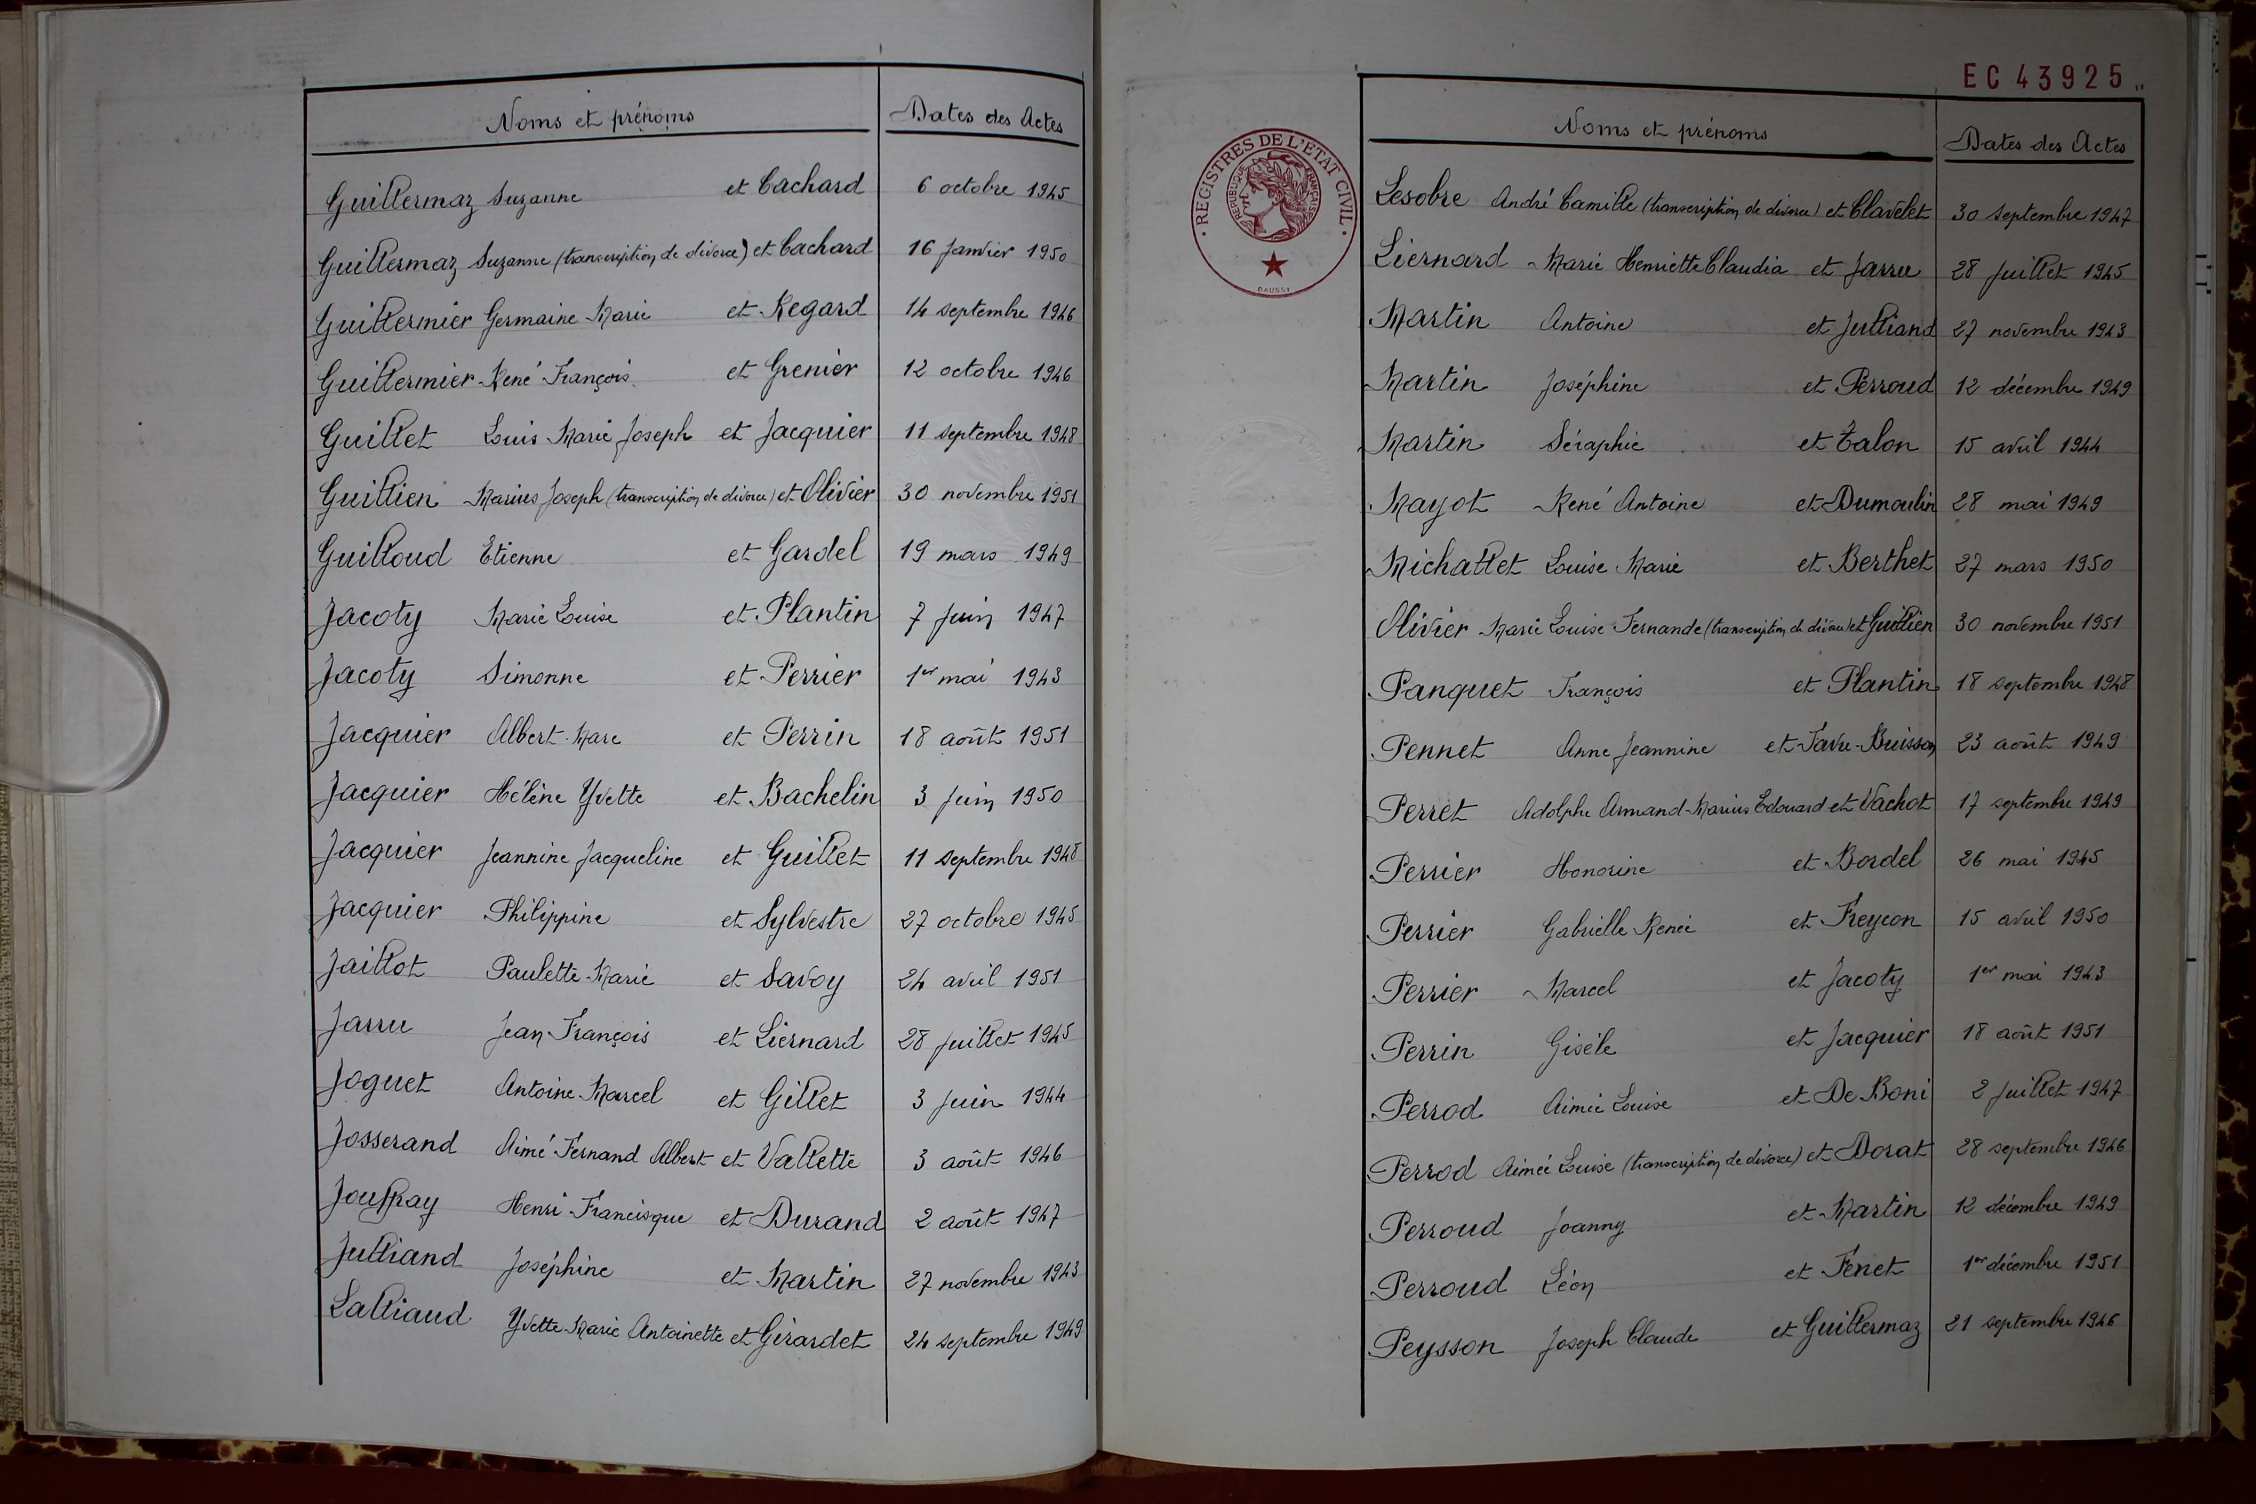 Noms et prénoms Dates des Actes
Guillermaz Suzanne et Cachard 6 octobre 1945
Guillermaz Suzanne (transcription de divorce) et Cachard 16 janvier 1950
Guillermier Germaine Marie et Regard 14 septembre 1946
Guillermier René François et Grenier 12 octobre 1946
Guillet Louis Marie Joseph et Jacquier 11 septembre 1948
Guillien Marius Joseph (transcription de divorce) et Olivier 30 novembre 1951
Guilloud Etienne et Gardel 19 mars 1949
Jacoty Marie Louise et Plantin 7 juin 1947
Jacoty Simonne et Perrier 1er mai 1943
Jacquier Albert Marc et Perrin 18 août 1951
Jacquier Hélène Yvette et Bachelin 3 juin 1950
Jacquier Jeannine Jacqueline et Guillet 11 septembre 1948
Jacquier Philippine et Sylvestre 27 octobre 1945
Jaillot Paulette Marie et Savoy 24 avril 1951
Jarru Jean François et Liernard 28 juillet 1945
Joguet Antoine Marcel et Gillet 3 juin 1944
Josserand Aimé Fernand Albert et Vallette 3 août 1946
Jouffray Henri Francisque et Durand 2 août 1947
Julliand Joséphine et Martin 27 novembre 1943
Lalliaud Yvette Marie Antoinette et Girardet 24 septembre 1949
EC 43925
REGISTRES DE L'ETAT CIVIL
REPUBLIQUE FRANÇAISE
DAUSSY
Noms et prénoms Dates des Actes
Lesobre André Camille (transcription de divorce) et Clavelet 30 septembre 1947
Liernard Marie Henriette Claudia et Jarru 28 juillet 1945
Martin Antoine et Julliand 27 novembre 1943
Martin Joséphine et Perroud 12 décembre 1949
Martin Séraphie et Talon 15 avril 1944
Mayot René Antoine et Dumoulin 28 mai 1949
Michallet Louise Marie et Berthet 27 mars 1950
Olivier Marie Louise Fernande (transcription de divorce) et Guillien 30 novembre 1951
Panquet François et Plantin 18 septembre 1948
Pennet Anne Jeannine et Favre-Buisson 23 août 1949
Perret Adolphe Armand Marius Edouard et Vachot 17 septembre 1949
Perrier Honorine et Bordel 26 mai 1945
Perrier Gabrielle Renée et Freycon 15 avril 1950
Perrier Marcel et Jacoty 1er mai 1943
Perrin Gisèle et Jacquier 18 août 1951
Perrod Aimée Louise et De Boni 2 juillet 1947
Perrod Aimée Louise (transcription de divorce) et Dorat 28 septembre 1946
Perroud Joanny et Martin 12 décembre 1949
Perroud Léon et Fenet 1er décembre 1951
Peysson Joseph Claude et Guillermaz 21 septembre 1946